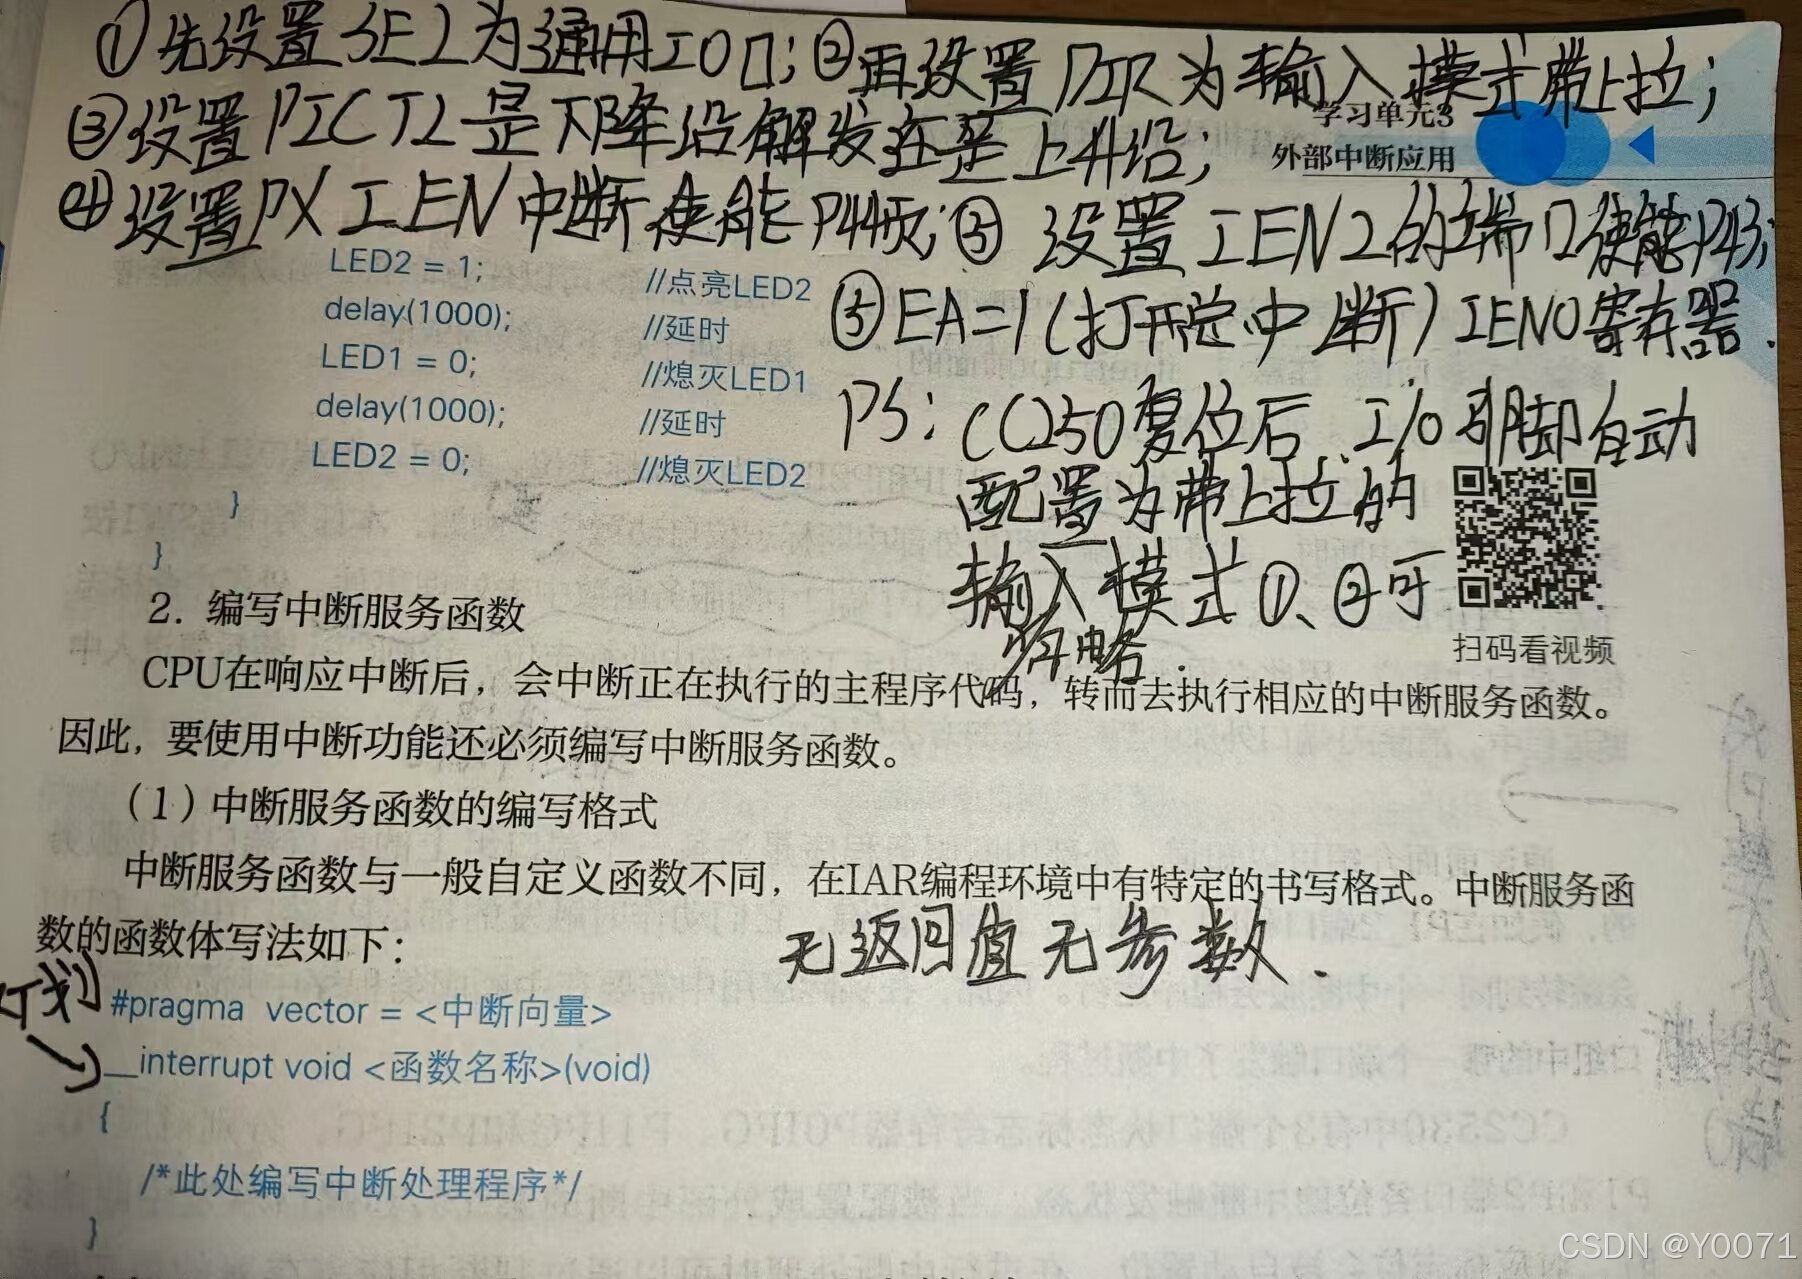 ①先设置SEL为通用IO口;②再设置DIR为输入模式带上拉;
③设置PICTL是下降沿触发还是上升沿;
学习单元3
外部中断应用
④设置PX IEN中断使能P44页;⑤设置IEN2的端口使能P43;
LED2 = 1; //点亮LED2
delay(1000); //延时
LED1 = 0; //熄灭LED1
delay(1000); //延时
LED2 = 0; //熄灭LED2
}
}
⑤EA=1(打开总中断)IEN0寄存器.
PS: CC250复位后 I/O引脚自动
配置为带上拉的
输入模式①、②可
省略.
扫码看视频
2. 编写中断服务函数
CPU在响应中断后，会中断正在执行的主程序代码，转而去执行相应的中断服务函数。
因此，要使用中断功能还必须编写中断服务函数。
（1）中断服务函数的编写格式
中断服务函数与一般自定义函数不同，在IAR编程环境中有特定的书写格式。中断服务函
数的函数体写法如下：
无返回值无参数.
#pragma vector = <中断向量>
__interrupt void <函数名称>(void)
{
/*此处编写中断处理程序*/
}
CSDN @Y0071